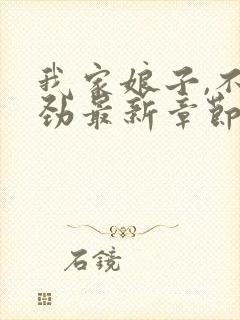 我家娘子,不
劲最新章节
石镜